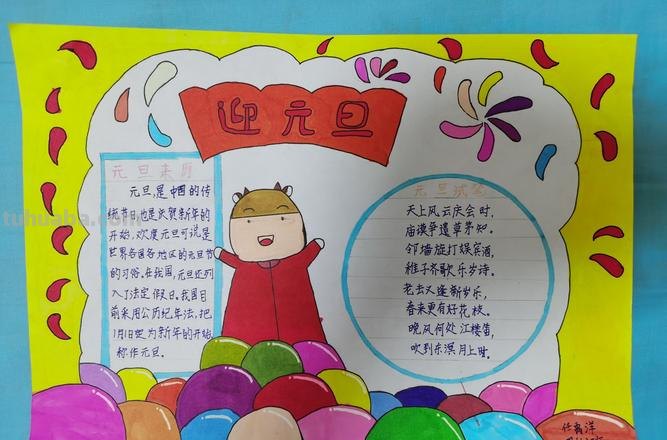 迎元旦
元旦来历
元旦,是中国的传
统节日,也是庆贺新年的
开始,欢度元旦可说是
世界各国各地区的元旦节
的习俗。在我国,元旦还列
入了法定假日。我国目
前采用公历纪年法,把
1月1日定为新年的开始
称作元旦。
元旦试笔
天上风云庆会时,
庙谟争遗草茅知。
邻墙旋打娱宾酒,
稚子齐歌乐岁诗。
老去又逢新岁乐,
春来更有好花枝。
晚风何处江楼笛,
吹到东溟月上时。
tuhuaba.com